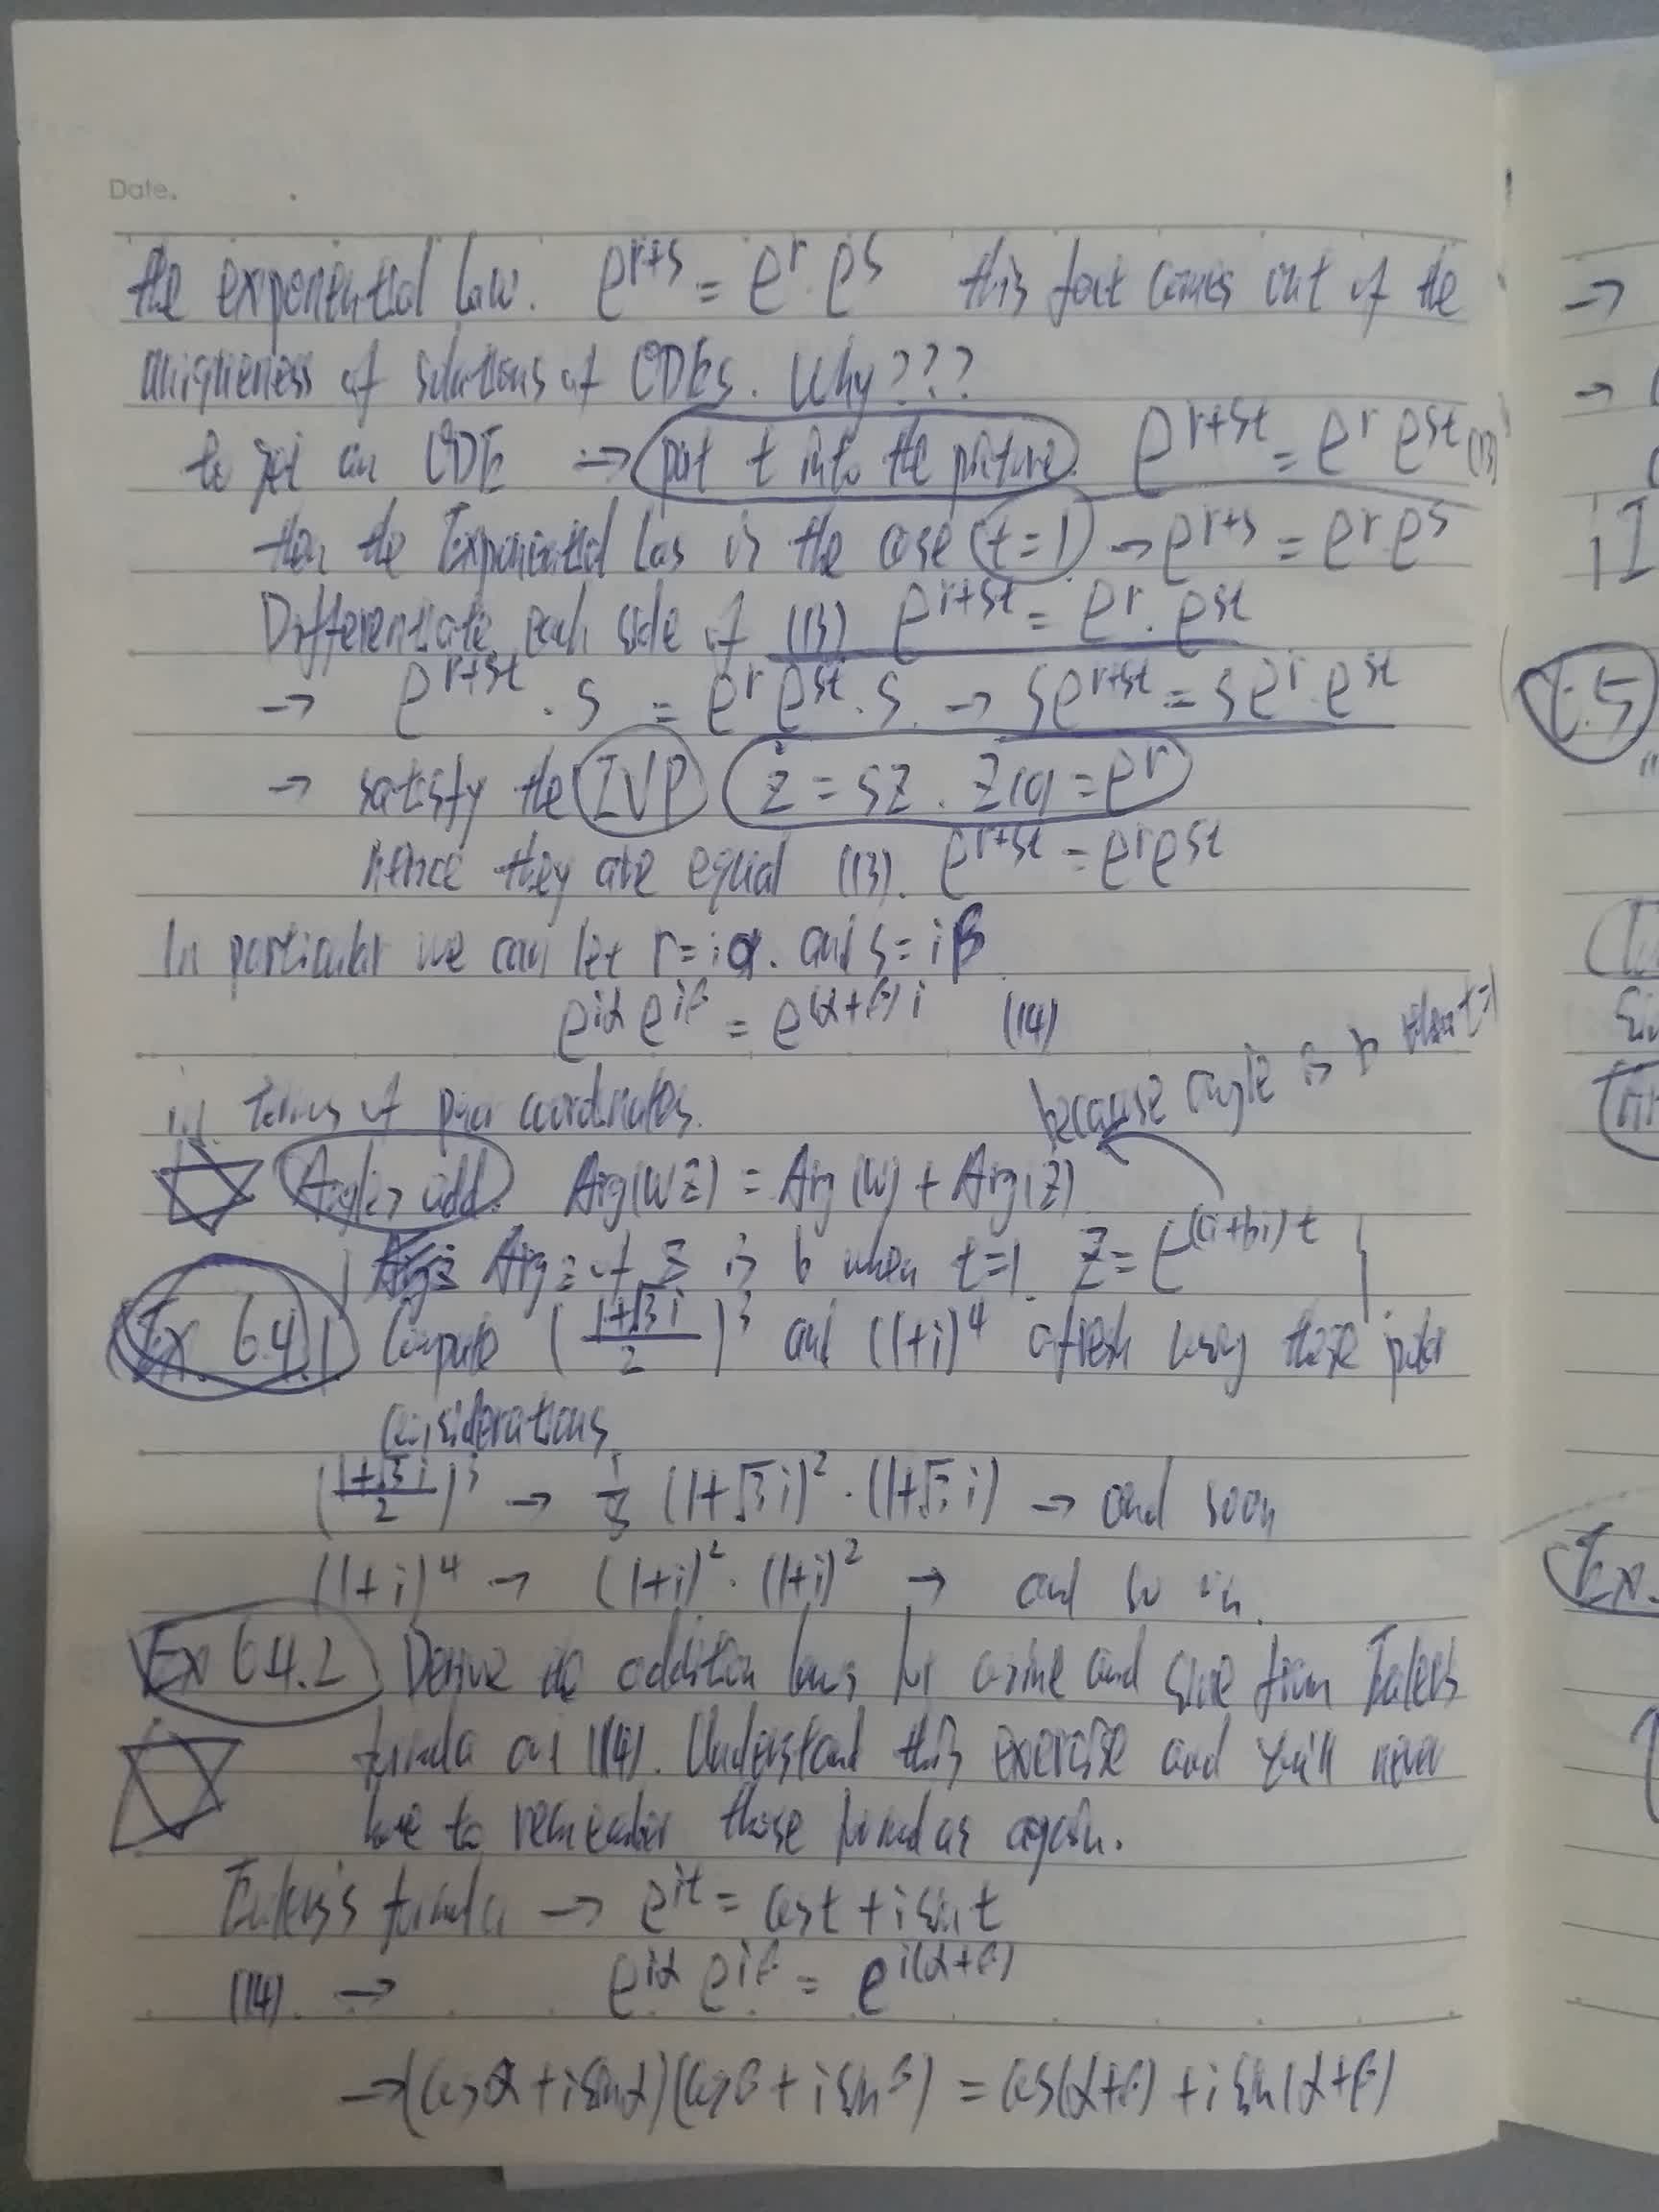 Date.
the exponential law. e^{r+s} = e^r · e^s this fact comes out of the
uniqueness of solutions of ODEs. Why???
to get an ODE → put t into the picture. e^{r+st} = e^r e^{st} (13)
then the Exponential Law is the case t=1 → e^{r+s} = e^r e^s
Differentiate each side of (13) e^{r+st} = e^r · e^{st}
→ e^{r+st} · s = e^r e^{st} · s. → se^{r+st} = se^r · e^{st}
→ satisfy the IVP ż = sz. z(0) = e^r
Hence they are equal (13). e^{r+st} = e^r e^{st}
In particular we can let r = iα. and s = iβ
e^{iα} e^{iβ} = e^{(α+β)i} (14)
because angle is b when t=1
in terms of polar coordinates.
Angles add. Arg(wz) = Arg(w) + Arg(z)
Arg z of z is b when t=1. z = e^{(a+bi)t}
Ex. 6.4.1 Compute (\frac{1+√3i}{2})^3 and (1+i)^4 afresh using these polar
considerations
(\frac{1+√3i}{2})^3 → (1+√3i)^2 · (1+√3i) → and so on
(1+i)^4 → (1+i)^2 · (1+i)^2 → and so on.
Ex 6.4.2 Derive the addition laws for cosine and sine from Euler's
formula and (14). Understand this exercise and you'll never
have to remember those formulas again.
Euler's formula → e^{it} = cos t + i sin t
(14). → e^{iα} e^{iβ} = e^{i(α+β)}
→ (cos α + i sin α)(cos β + i sin β) = cos(α+β) + i sin(α+β)